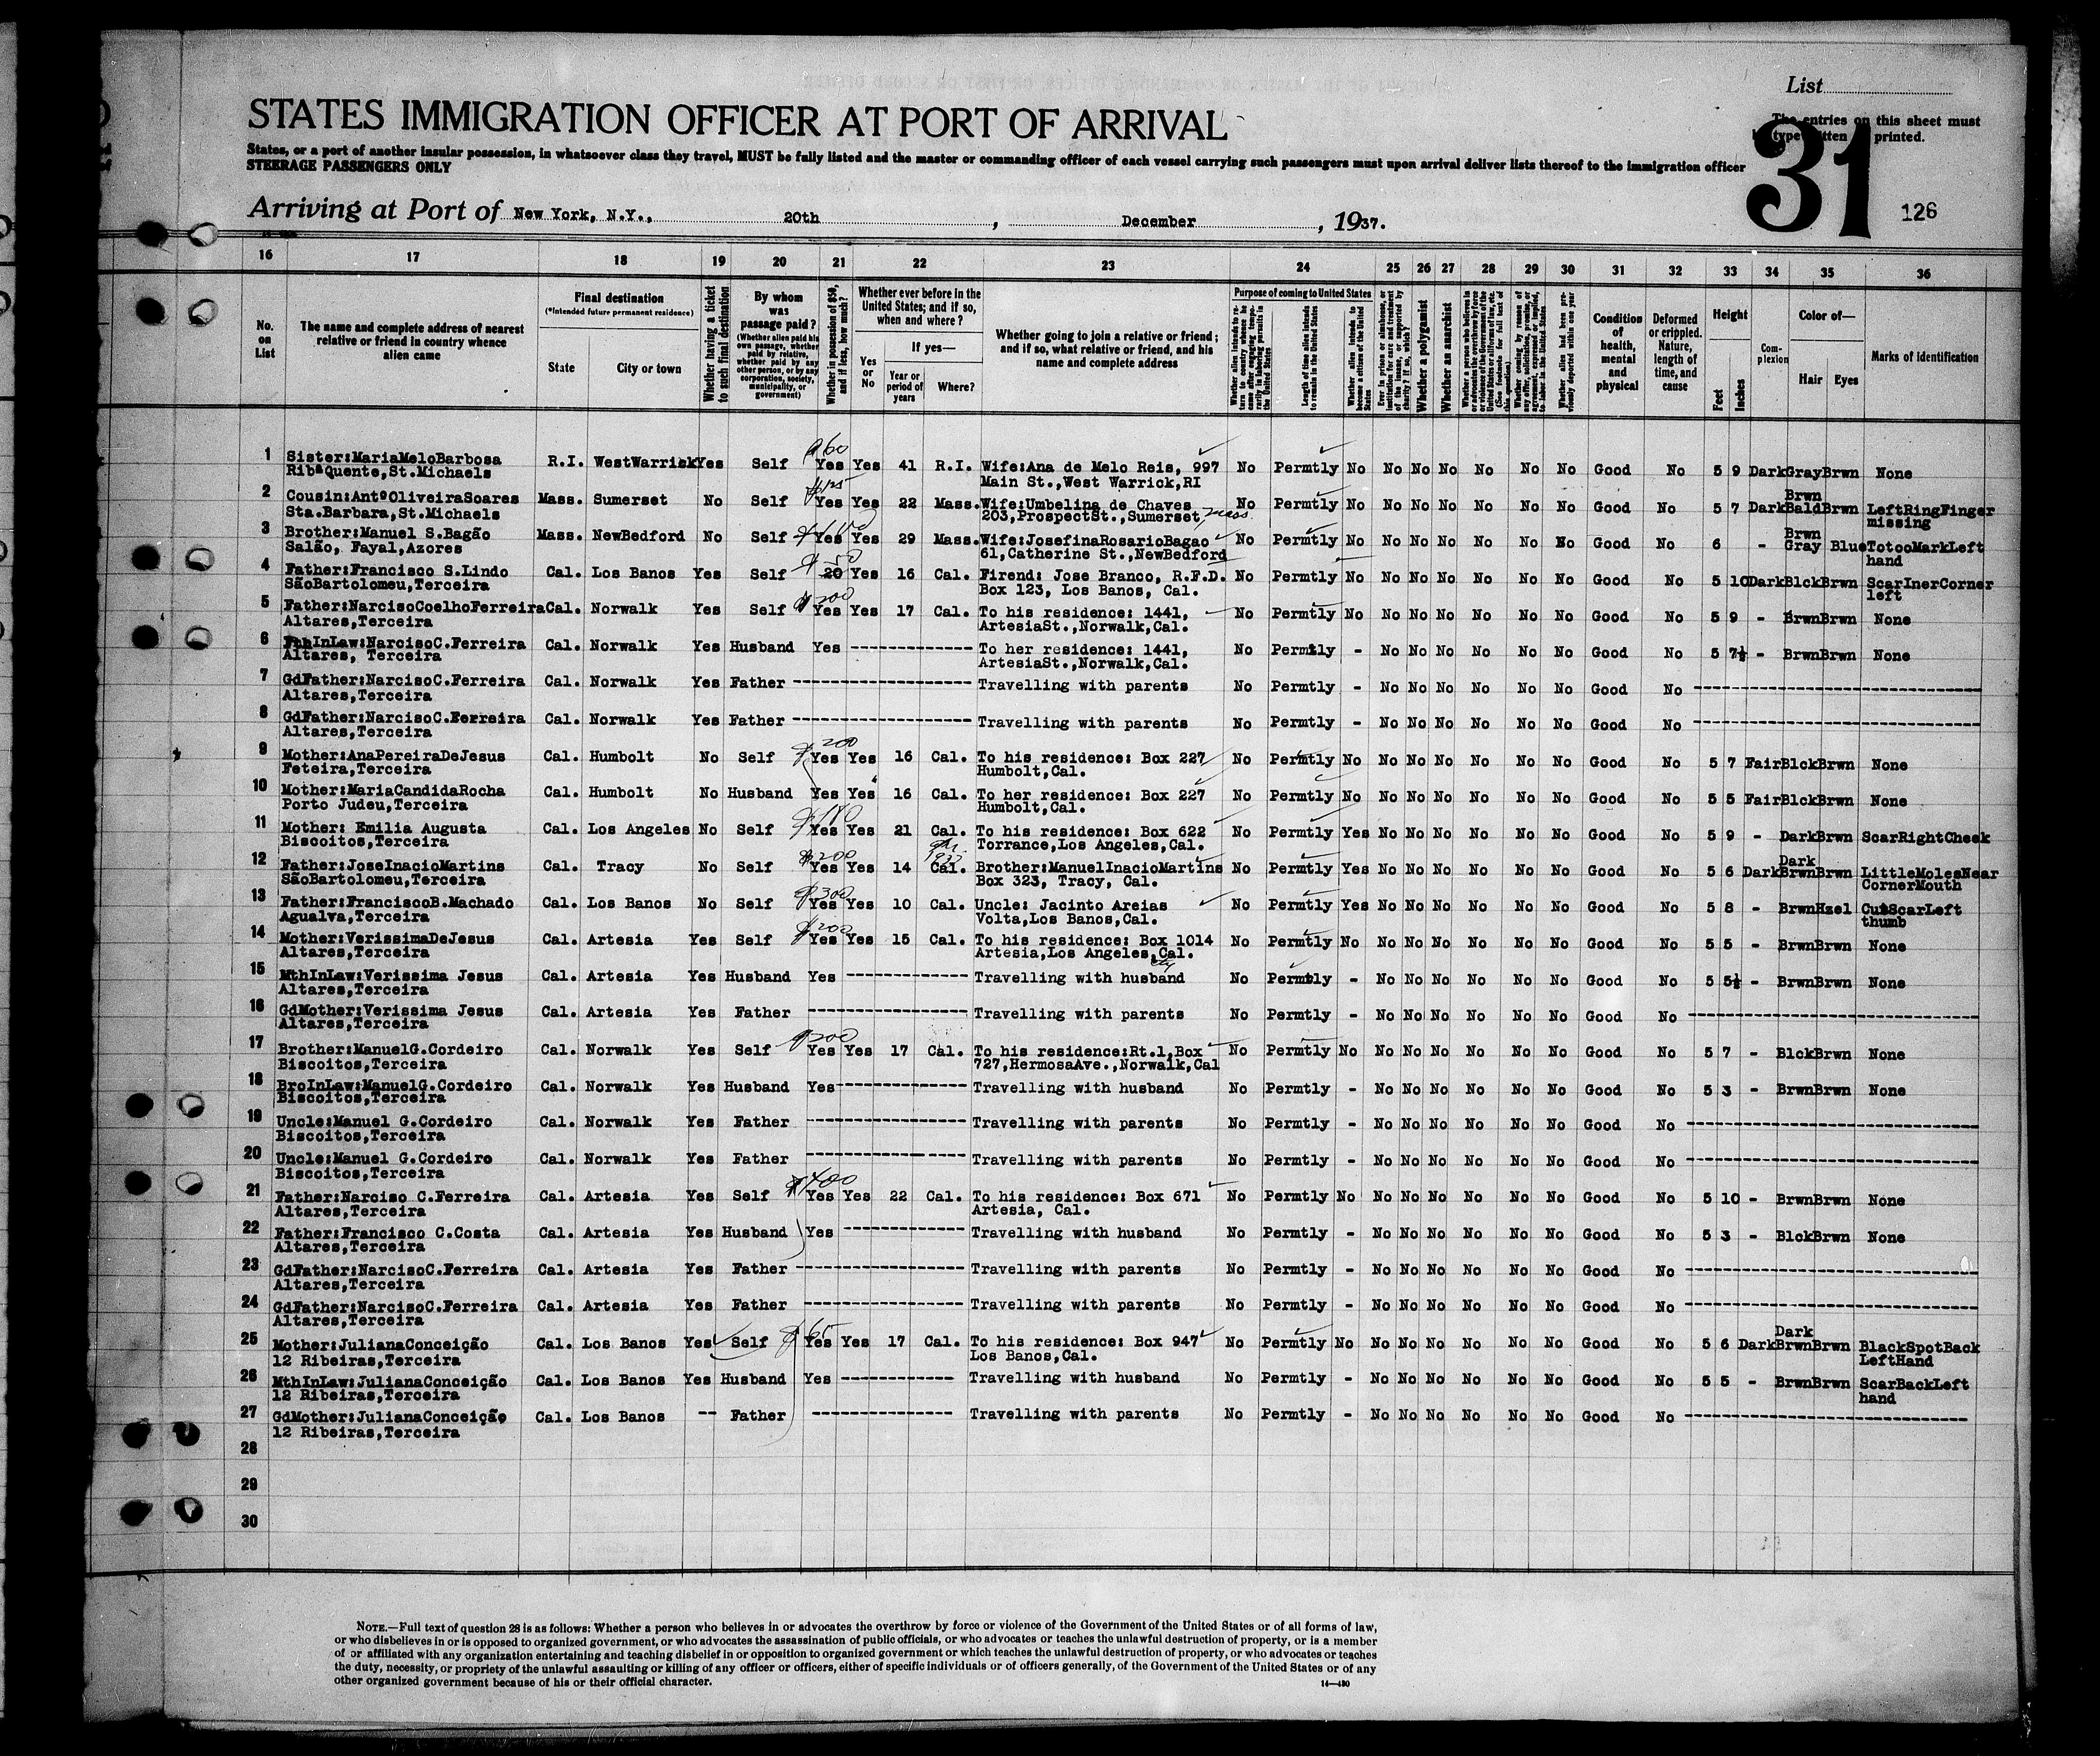 List
STATES IMMIGRATION OFFICER AT PORT OF ARRIVAL
The entries on this sheet must
be typewritten or printed.
States, or a port of another insular possession, in whatsoever class they travel, MUST be fully listed and the master or commanding officer of each vessel carrying such passengers must upon arrival deliver lists thereof to the immigration officer
STEERAGE PASSENGERS ONLY
31
126
Arriving at Port of New York, N.Y., 20th, December, 1937.
16 17 18 19 20 21 22 23 24 25 26 27 28 29 30 31 32 33 34 35 36
No. on List
The name and complete address of nearest relative or friend in country whence alien came
Final destination
(*Intended future permanent residence)
State City or town
Whether having a ticket to such final destination
By whom was passage paid?
(Whether alien paid his own passage, whether paid by relative, whether paid by any other person, or by any corporation, society, municipality, or government)
Whether in possession of $50, and if less, how much?
Whether ever before in the United States; and if so, when and where?
Yes or No
If yes—
Year or period of years
Where?
Whether going to join a relative or friend; and if so, what relative or friend, and his name and complete address
Purpose of coming to United States
Whether alien intends to return to country whence he came after engaging temporarily in laboring pursuits in the United States
Length of time alien intends to remain in the United States
Whether alien intends to become a citizen of the United States
Ever in prison or almshouse, or institution for care and treatment of the insane, or supported by charity? If so, which?
Whether a polygamist
Whether an anarchist
Whether a person who believes in or advocates the overthrow by force or violence of the Government of the United States or all forms of law, etc. (See footnote for full text of this question)
Whether coming by reason of any offer, solicitation, promise, or agreement, expressed or implied, to labor in the United States
Whether alien had been previously deported within one year
Condition of health, mental and physical
Deformed or crippled. Nature, length of time, and cause
Height
Feet Inches
Complexion
Color of—
Hair Eyes
Marks of identification
1 Sister:MariaMeloBarbosa R.I. WestWarrick Yes Self $60 Yes Yes 41 R.I. Wife:Ana de Melo Reis, 997 No Permtly No No No No No No No Good No 5 9 Dark Gray Brwn None
RibªQuente,St.Michaels Main St.,West Warrick,RI
2 Cousin:AntºOliveiraSoares Mass. Sumerset No Self $125 Yes Yes 22 Mass. Wife:Umbelina de Chaves No Permtly No No No No No No No Good No 5 7 Dark Brwn Bald Brwn LeftRingFinger
Sta.Barbara,St.Michaels 203,ProspectSt.,Sumerset, Mass. missing
3 Brother:Manuel S.Bagão Mass. NewBedford No Self Yes Yes 29 Mass. Wife:JosefinaRosarioBagao No Permtly No No No No No No No Good No 6 - Brwn Gray Blue TotooMarkLeft
Salão, Fayal,Azores 61,Catherine St.,NewBedford hand
4 Father:Francisco S.Lindo Cal. Los Banos Yes Self $50 20 Yes 16 Cal. Firend: Jose Branco, R.F.D. No Permtly No No No No No No No Good No 5 10 Dark Blck Brwn ScarInerCorner
SãoBartolomeu,Terceira Box 123, Los Banos, Cal. left
5 Father:NarcisoCoelhoFerreira Cal. Norwalk Yes Self $200 Yes Yes 17 Cal. To his residence: 1441, No Permtly No No No No No No No Good No 5 9 - Brwn Brwn None
Altares,Terceira ArtesiaSt.,Norwalk,Cal.
6 FthInLaw:NarcisoC.Ferreira Cal. Norwalk Yes Husband Yes ------------- To her residence: 1441, No Permtly - No No No No No No Good No 5 7½ - Brwn Brwn None
Altares, Terceira ArtesiaSt.,Norwalk,Cal.
7 GdFather:NarcisoC.Ferreira Cal. Norwalk Yes Father ------------- Travelling with parents No Permtly - No No No No No No Good No -------------
Altares,Terceira
8 GdFather:NarcisoC.Ferreira Cal. Norwalk Yes Father ------------- Travelling with parents No Permtly - No No No No No No Good No -------------
Altares,Terceira
9 Mother:AnaPereiraDeJesus Cal. Humbolt No Self $200 Yes Yes 16 Cal. To his residence: Box 227 No Permtly No No No No No No No Good No 5 7 Fair Blck Brwn None
Feteira,Terceira Humbolt,Cal.
10 Mother:MariaCandidaRocha Cal. Humbolt No Husband Yes Yes 16 Cal. To her residence: Box 227 No Permtly No No No No No No No Good No 5 5 Fair Blck Brwn None
Porto Judeu,Terceira Humbolt,Cal.
11 Mother: Emilia Augusta Cal. Los Angeles No Self Yes Yes 21 Cal. To his residence: Box 622 No Permtly Yes No No No No No No Good No 5 9 - Dark Brwn ScarRightCheek
Biscoitos,Terceira Torrance,Los Angeles,Cal.
12 Father:JoseInacioMartins Cal. Tracy No Self $200 Yes Yes 14 Cal. Brother:ManuelInacioMartins No Permtly Yes No No No No No No Good No 5 6 Dark Dark Brwn Brwn LittleMolesNear
SãoBartolomeu,Terceira Box 323, Tracy, Cal. CornerMouth
13 Father:FranciscoB.Machado Cal. Los Banos No Self $300 Yes Yes 10 Cal. Uncle: Jacinto Areias No Permtly Yes No No No No No No Good No 5 8 - Brwn Hzel CutScarLeft
Agualva,Terceira Volta,Los Banos,Cal. thumb
14 Mother:VerissimaDeJesus Cal. Artesia Yes Self $200 Yes Yes 15 Cal. To his residence: Box 1014 No Permtly No No No No No No No Good No 5 5 - Brwn Brwn None
Altares,Terceira Artesia,Los Angeles,Cal.
15 MthInLaw:Verissima Jesus Cal. Artesia Yes Husband Yes ------------- Travelling with husband No Permtly - No No No No No No Good No 5 5½ - Brwn Brwn None
Altares,Terceira
16 GdMother:Verissima Jesus Cal. Artesia Yes Father ------------- Travelling with parents No Permtly - No No No No No No Good No -------------
Altares,Terceira
17 Brother:ManuelG.Cordeiro Cal. Norwalk Yes Self $200 Yes Yes 17 Cal. To his residence:Rt.1,Box No Permtly No No No No No No No Good No 5 7 - Blck Brwn None
Biscoitos,Terceira 727,HermosaAve.,Norwalk,Cal
18 BroInLaw:ManuelG.Cordeiro Cal. Norwalk Yes Husband Yes ------------- Travelling with husband No Permtly - No No No No No No Good No 5 3 - Brwn Brwn None
Biscoitos,Terceira
19 Uncle:Manuel G.Cordeiro Cal. Norwalk Yes Father ------------- Travelling with parents No Permtly - No No No No No No Good No -------------
Biscoitos,Terceira
20 Uncle:Manuel G.Cordeiro Cal. Norwalk Yes Father ------------- Travelling with parents No Permtly - No No No No No No Good No -------------
Biscoitos,Terceira
21 Father:Narciso C.Ferreira Cal. Artesia Yes Self $400 Yes Yes 22 Cal. To his residence: Box 671 No Permtly No No No No No No No Good No 5 10 - Brwn Brwn None
Altares,Terceira Artesia, Cal.
22 Father:Francisco C.Costa Cal. Artesia Yes Husband Yes ------------- Travelling with husband No Permtly - No No No No No No Good No 5 3 - Blck Brwn None
Altares,Terceira
23 GdFather:NarcisoC.Ferreira Cal. Artesia Yes Father ------------- Travelling with parents No Permtly - No No No No No No Good No -------------
Altares,Terceira
24 GdFather:NarcisoC.Ferreira Cal. Artesia Yes Father ------------- Travelling with parents No Permtly - No No No No No No Good No -------------
Altares,Terceira
25 Mother:JulianaConceição Cal. Los Banos Yes Self $65 Yes Yes 17 Cal. To his residence: Box 947 No Permtly No No No No No No No Good No 5 6 Dark Dark Brwn Brwn BlackSpotBack
12 Ribeiras,Terceira Los Banos,Cal. LeftHand
26 MthInLaw:JulianaConceição Cal. Los Banos Yes Husband Yes ------------- Travelling with husband No Permtly - No No No No No No Good No 5 5 - Brwn Brwn ScarBackLeft
12 Ribeiras,Terceira hand
27 GdMother:JulianaConceição Cal. Los Banos -- Father ------------- Travelling with parents No Permtly - No No No No No No Good No -------------
12 Ribeiras,Terceira
28
29
30
NOTE.—Full text of question 28 is as follows: Whether a person who believes in or advocates the overthrow by force or violence of the Government of the United States or of all forms of law,
or who disbelieves in or is opposed to organized government, or who advocates the assassination of public officials, or who advocates or teaches the unlawful destruction of property, or is a member
of or affiliated with any organization entertaining and teaching disbelief in or opposition to organized government or which teaches the unlawful destruction of property, or who advocates or teaches
the duty, necessity, or propriety of the unlawful assaulting or killing of any officer or officers, either of specific individuals or of officers generally, of the Government of the United States or of any
other organized government because of his or their official character.
14—480